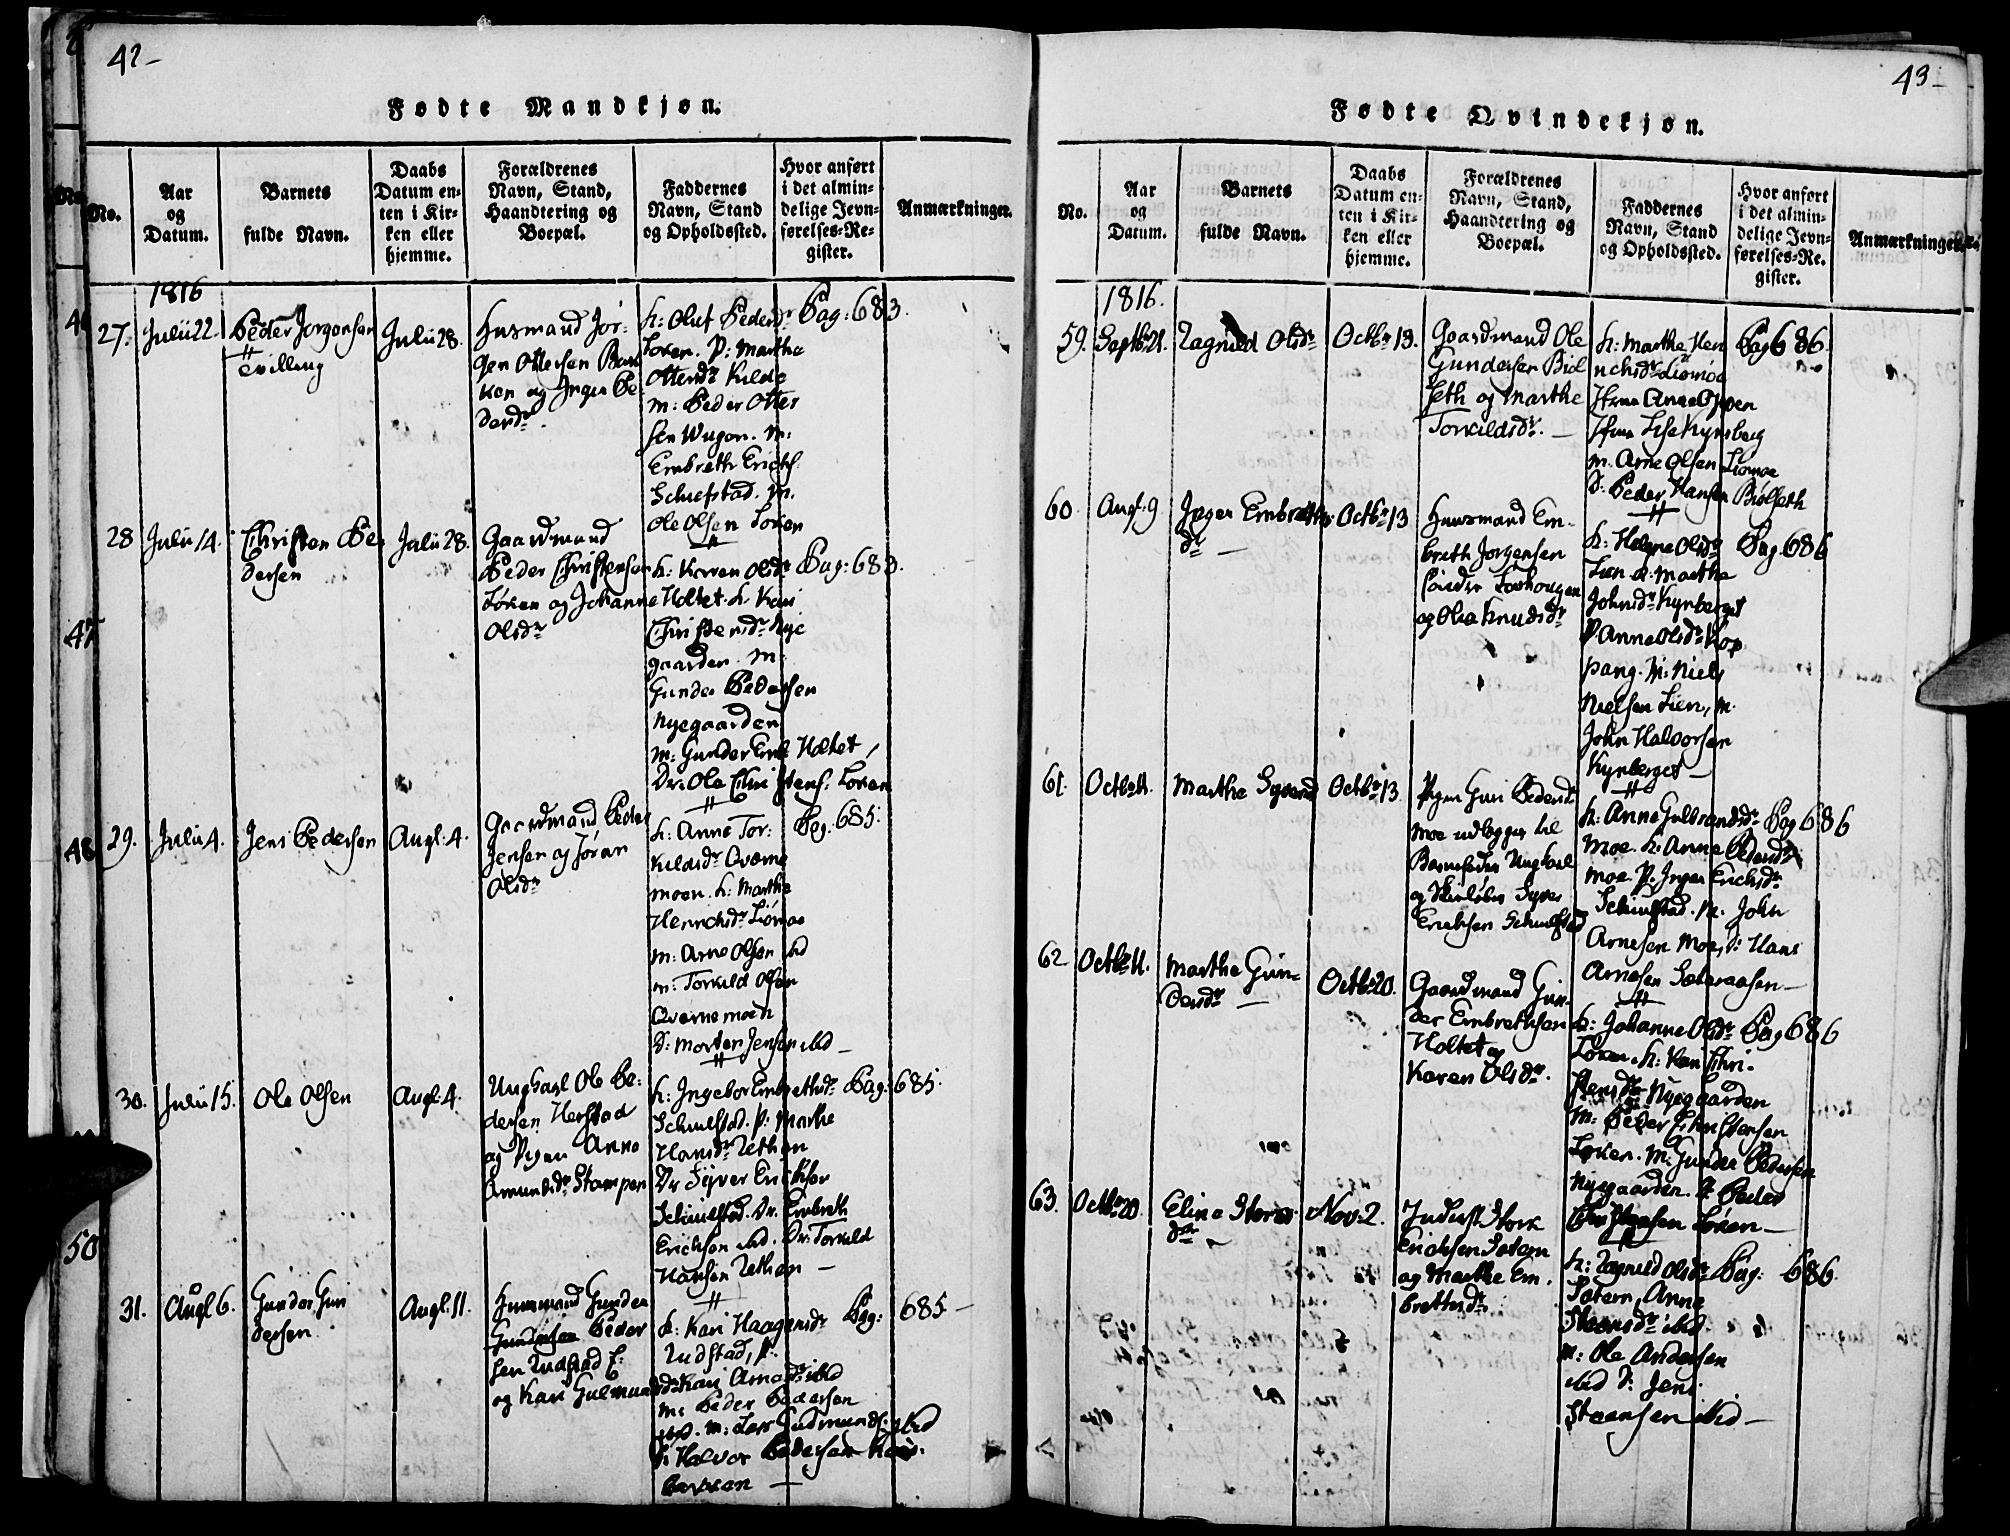 42-
Fødte Mandkjøn.
No.
Aar
og
Datum.
Barnets
fulde Navn.
Daabs
Datum en-
ten i Kir-
ken eller
hjemme.
Forældrenes
Navn, Stand,
Haandtering og
Boepæl.
Faddernes
Navn, Stand
og Opholdssted.
Hvor anført
i det almin-
delige Jevn-
førelses-Re-
gister.
Anmærkninger.
1816
27.
Julii 22
Peder Jørgensen
Tvilling
Julii 28.
Huusmand Jør-
gen Ottersen
og Inger Pe
dersdr.
K: Oluf Pedersdr
Løken. P: Marthe
Ottersdr Kilde
M: Peder Otter
sen
M:
Embreth Erichs.
Schiefstad. M.
Ole Olsen Løken
Pag: 683.
28
Julii 14.
Christen Pe
dersen
Julii 28.
Gaardmand
Peder Christensen
Løken og Johanne
Olsdr
K: Karen Olsdr
Holtet. K. Kari
Christensdr Nye
gaarden. M.
Gunder Pedersen
Nyegaarden
M: Gunder Emb. Holtet
Dr: Ole Christens. Løken
Pag: 683.
29.
Julii 4.
Jens Pedersen
Augl. 4.
Gaardmand Peder
Jensen og Jøran
Olsdr
K: Anne Tor:
kildsdr Qværne
moen. K: Marthe
Henrichsdr Liømoe
M: Arne Olsen ibd
M: Torkild Olsen
Qvernemoen
D: Morten Jensen ibd -
Pag: 685.
30.
Julii 15.
Ole Olsen
Augl. 4.
Ungkarl Ole Pe-
dersen Herstad
og Pigen Anne
Amundsdr Stampen
K: Ingebor Embrethsdr
Schiulstad. P: Marthe
Hansdr
Dr Syver Erichsen
Schiulstad. Dr. Embreth
Erichsen ibd. Dr: Torkild
Hansen
Pag: 685.
31.
Augl 6.
Gunder Gun
dersen
Augl. 11.
Huusmand Gunder
Gundersen Peder
sen Rudstad E:
og Kari Gulmundsdr
K: Kari Haagensdr
Rudstad, P:
Kari Arnesdr ibd
M: Peder Pedersen
ibd. M: Lars Gudmunds: ibd
D: Halvor Pedersen
Pag: 685 -
43-
Fødte Qvindekjøn.
No.
Aar
og
Datum.
Barnets
fulde Navn.
Daabs
Datum en-
ten i Kir-
ken eller
hjemme.
Forældrenes
Navn, Stand,
Haandtering og
Boepæl.
Faddernes
Navn, Stand
og Opholdssted.
Hvor anført
i det almin-
delige Jevn-
førelses-Re-
gister.
Anmærkninger.
1816.
59.
Septbr 21.
Ragnild Olsdr
Octbr 13.
Gaardmand Ole
Gundersen Biøl
seth og Marthe
Torkildsdr. -
K: Marthe Hen
richsdr Liømoe
Anne Opsen
Lise Kynberg
M. Arne Olsen Liømoe
D: Peder Hansen Biølseth
Pag 686.
60.
Augl. 9
Inger Embreths
dr -
Octbr 13
Huusmand Em-
breth Jørgensen
og Olea Knudsdr
K: Helgne Olsdr
Lien K: Marthe
Johnsdr Kynberget
P Anne Olsdr Kop
pang. M: Niels
Nielsen Lien, M.
John Halvorsen
Kynberget -
Pag. 686
61.
Octbr 11.
Marthe Syversd
Octbr 13.
Pigen Guri Pedersdr
Moe udlægger til
Barnefader Ungkarl
og Syver
Erichsen Schiulstad
K: Anne Gulbrandsdr
Moe. K: Anne Olsdr
Moe P. Inger Erichsdr
Schiulstad. M: John
Arnesen Moe, D: Hans
Arnesen Sæteraasen -
Pag 686
62
Octbr 11.
Marthe Gun-
dersdr -
Octbr 20.
Gaardmand Gun-
der Embrethsen
Holtet og
Karen Olsdr.
K: Johanne Olsdr
Løken. K: Kari Chri-
stensdr Nyegaarden
M: Peder Christensen
Løken. M. Gunder Pedersen
Nyegaarden. D Peder
Christensen Løken -
Pag 686
63.
Octbr 20.
Eline Stors
dr -
Nov: 2.
Inderst Stork
Erichsen Søtern
og Marthe Em-
brethsdr.
K: Ragnild Olsdr
Søtern, Anne
Steensdr ibd
M: Ole Andersen
ibd D: Jens
Steensen ibd -
Pag: 686.
47
48
50